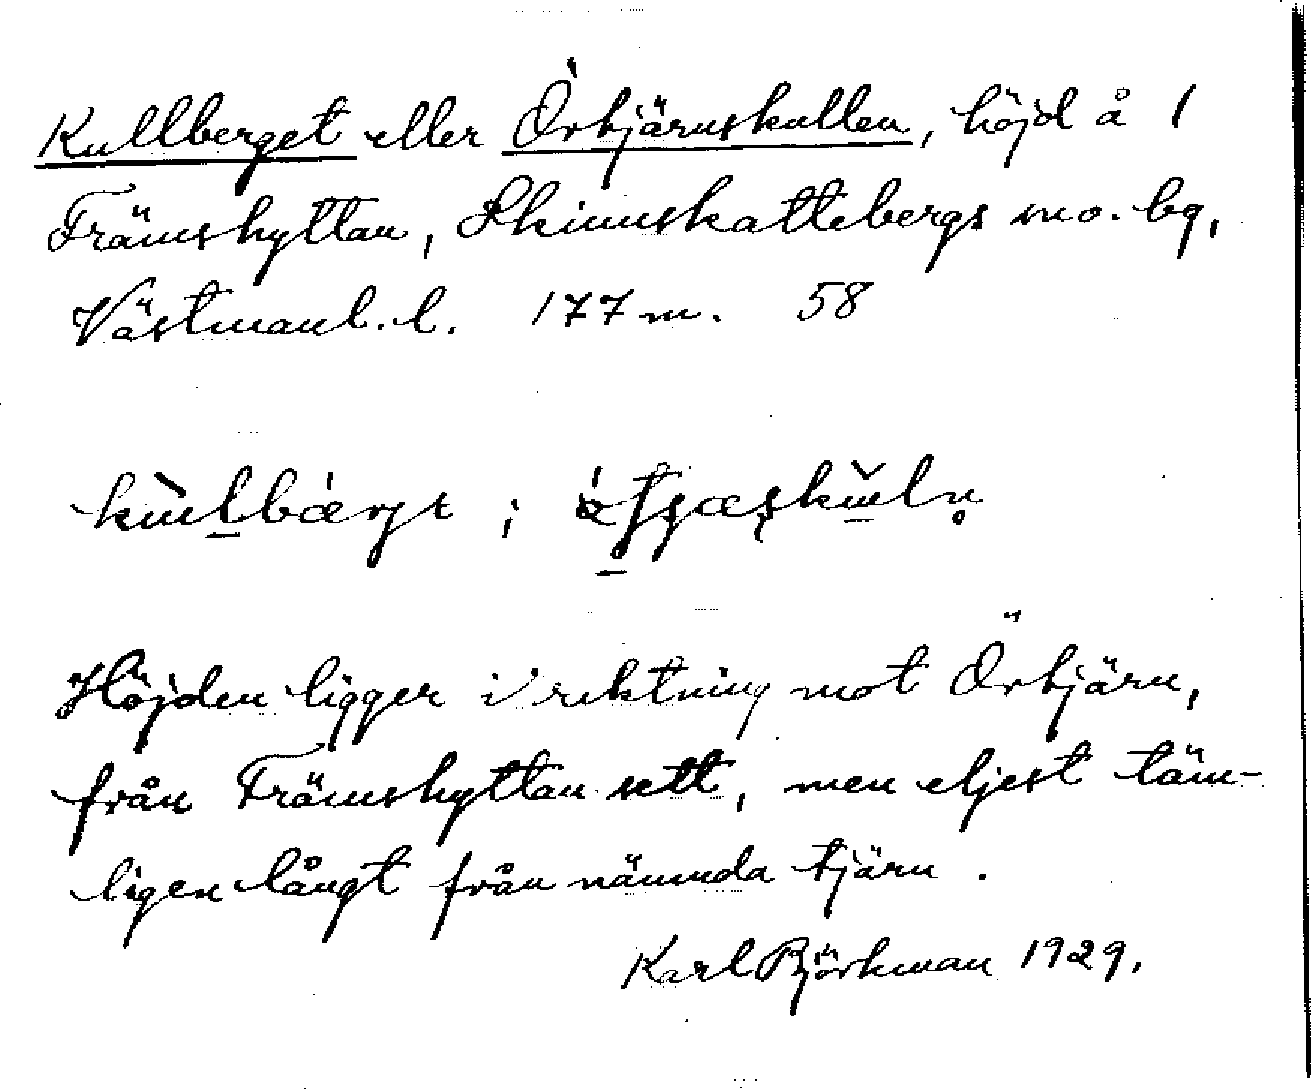 Kullberget eller Örtjärnskullen, höjd å 1
Främshyttan, Skinnskattebergs sn o. bg,
Västmanl. l. 177 m. 58
Höjden ligger i riktning mot Örtjärn,
från Främshyttan sett, men eljest täm-
ligen långt från nämnda tjärn.
Karl Björkman 1929.